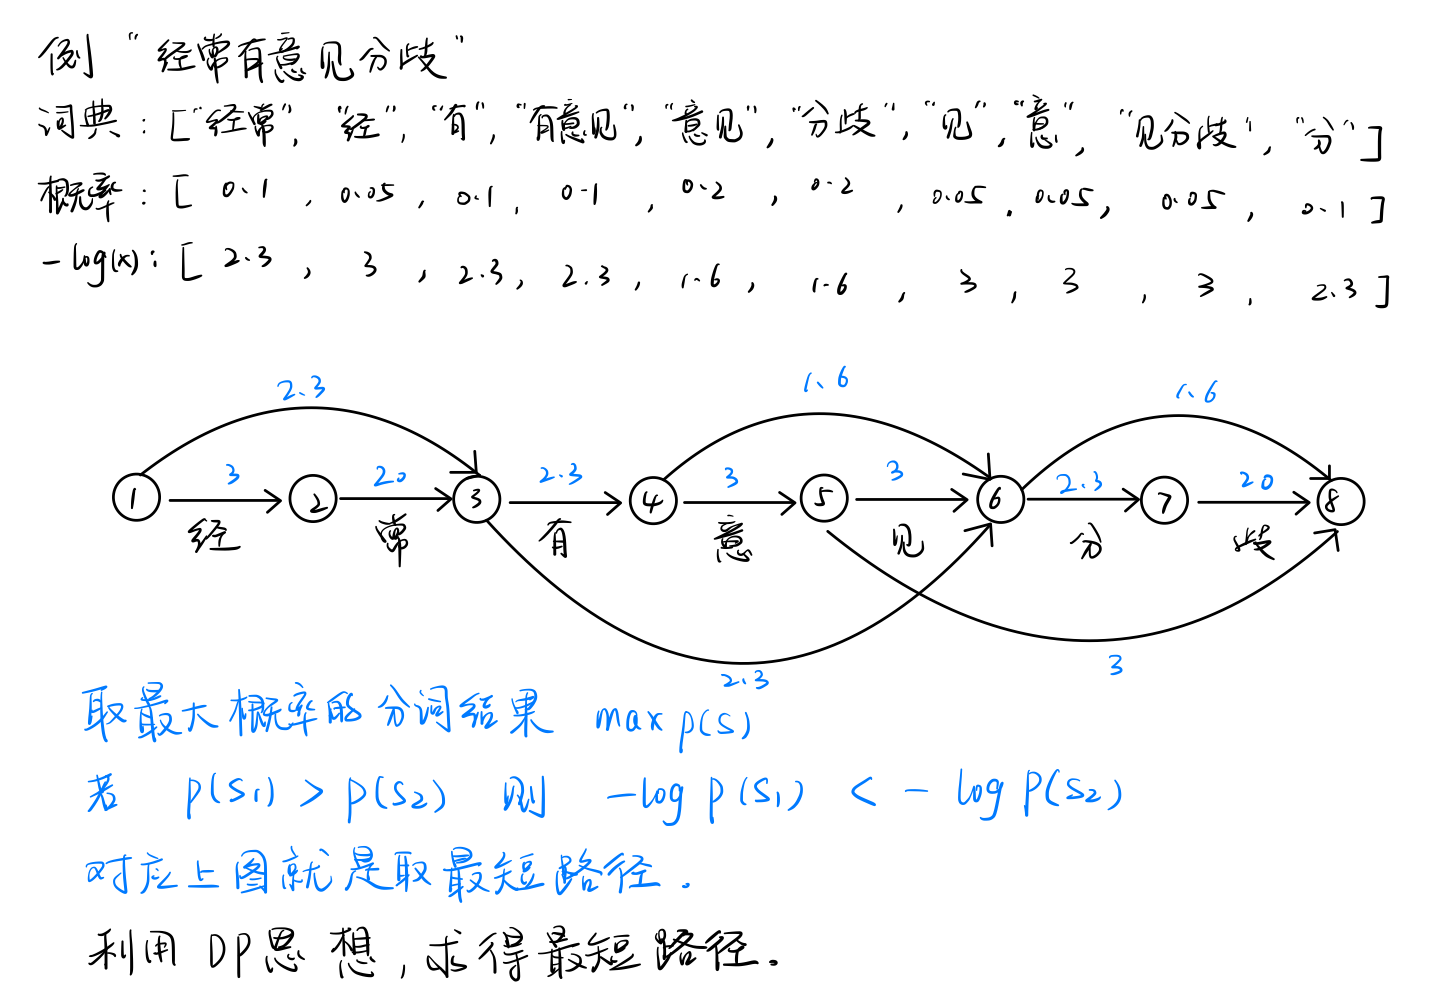 例 "经常有意见分歧"
词典 : ["经常", "经", "有", "有意见", "意见", "分歧", "见", "意", "见分歧", "分"]
概率 : [ 0.1 , 0.05 , 0.1 , 0.1 , 0.2 , 0.2 , 0.05 , 0.05 , 0.05 , 0.1 ]
-log(x) : [ 2.3 , 3 , 2.3 , 2.3 , 1.6 , 1.6 , 3 , 3 , 3 , 2.3 ]
2.3 1.6 1.6
3 20 2.3 3 3 2.3 20
1 2 3 4 5 6 7 8
经 常 有 意 见 分 歧
2.3 3
取最大概率的分词结果 max p(s)
若 p(s1) > p(s2) 则 -log p(s1) < -log p(s2)
对应上图就是取最短路径.
利用DP思想,求得最短路径.